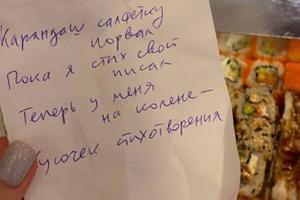 Карандаш салфетку
порвал
Пока я стих свой
писал
Теперь у меня
на колене –
Кусочек стихотворения